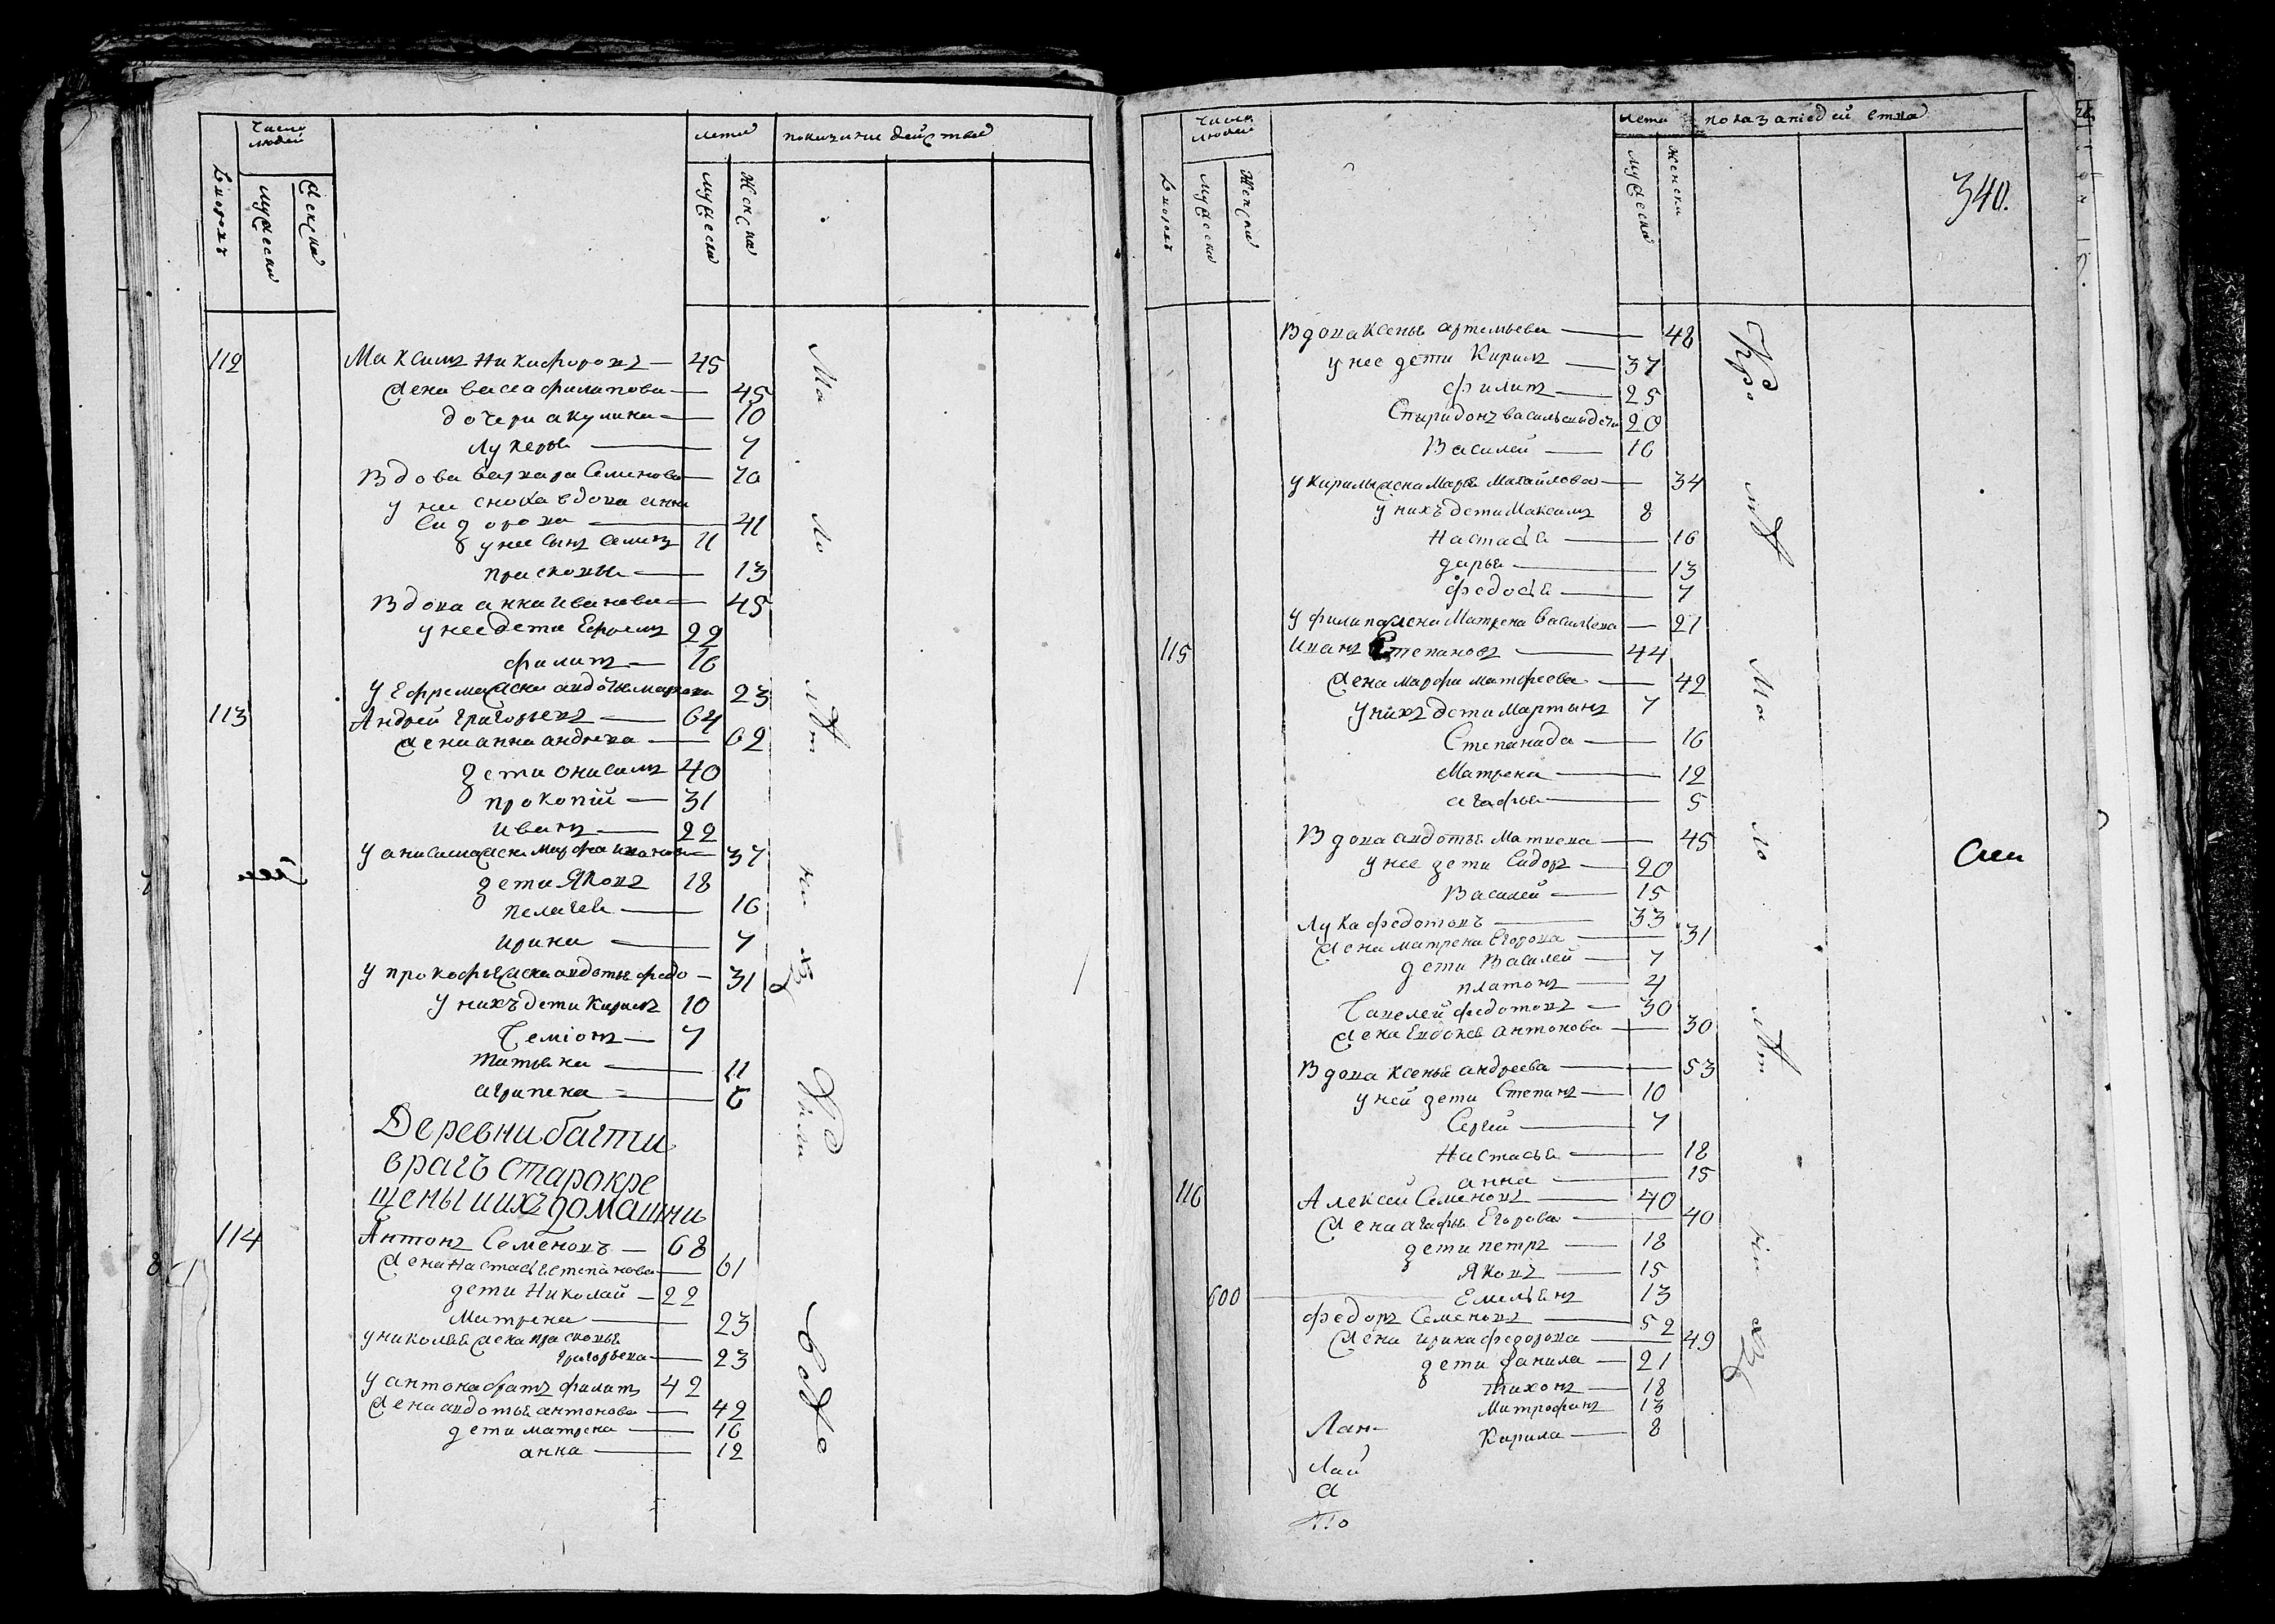 число людей
лета
показание действа
дворовъ
мужеска
женска
мужеска
женска
112 Максимъ Никифоровъ — 45
жена васса филипова — 45
дочери акулина — 10
лукерья — 7
Вдова варвара Семенова — 70
у ней сноха вдова анна
Сидорова — 41
у нее сынъ Семенъ 11
прасковья — 13
Вдова анна иванова — 45
у нее дети Ефремъ 22
филипъ — 16
у Ефрема жена авдотья маркова 23
113 Андрей Григорьевъ — 64
жена анна андреева — 62
дети анисимъ 40
прокопій — 31
иванъ — 22
у анисима жена марфа иванова — 37
дети Яковъ 18
пелагея — 16
ирина — 7
у прокофья жена авдотья федо — 31
у нихъ дети Кирилъ 10
Семіонъ — 7
татьяна — 11
агрипена — 6
Деревни багти
врагъ старокре
щены и ихъ домашни
114 Антонъ Семеновъ — 68
жена настасья степанова — 61
дети Николай — 22
Матрена — 23
у николая жена прасковья
григорьева — 23
у антона братъ филипъ 42
жена авдотья антонова — 42
дети матрена — 16
анна — 12
число людей
лета
показаніе действа
дворовъ
мужеска
женска
мужеска
женска
340.
Вдова Ксенья артемьева — 48
у нее дети Кирилъ — 37
филипъ — 25
Спиридонъ васильевы дети 20
Василей — 16
у Кирилы жена Марья Михайлова — 34
у нихъ дети Максимъ 8
Настасья — 16
дарья — 13
федосья — 7
у филипа жена Матрена васильева — 21
115 Иванъ Степановъ — 44
жена марфа матфеева — 42
у нихъ дети Мартынъ 7
Степанида — 16
Матрена — 12
агафья — 5
Вдова авдотья Матвеева — 45
у нее дети Сидоръ — 20
Василей — 15
Лука федотовъ — 33
жена матрена Егорова — 31
дети Василей — 7
платонъ — 4
Савелей федотовъ — 30
жена Евдокея антонова — 30
Вдова ксенья андреева — 53
у ней дети Степанъ — 10
Сергей — 7
Настасья — 18
анна — 15
116 Алексей Семеновъ — 40
жена агафья Егорова — 40
дети петръ — 18
Яковъ — 15
600 Емельянъ 13
федоръ Семеновъ — 52
жена ирина федорова — 49
дети данила — 21
тихонъ — 18
Митрофанъ 13
Кирила — 8